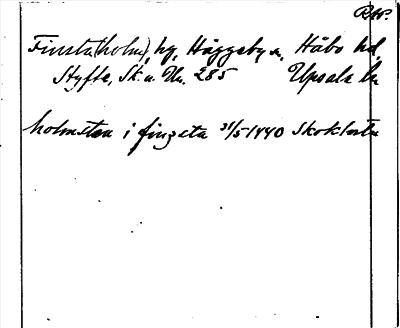 Rep.
Finsta(holm), hg, Häggeby sn, Håbo hd,
Styffe, Sk. u. Un. 285 Upsala ln
holmsten i finzeta 31/5 1440 Skokloster